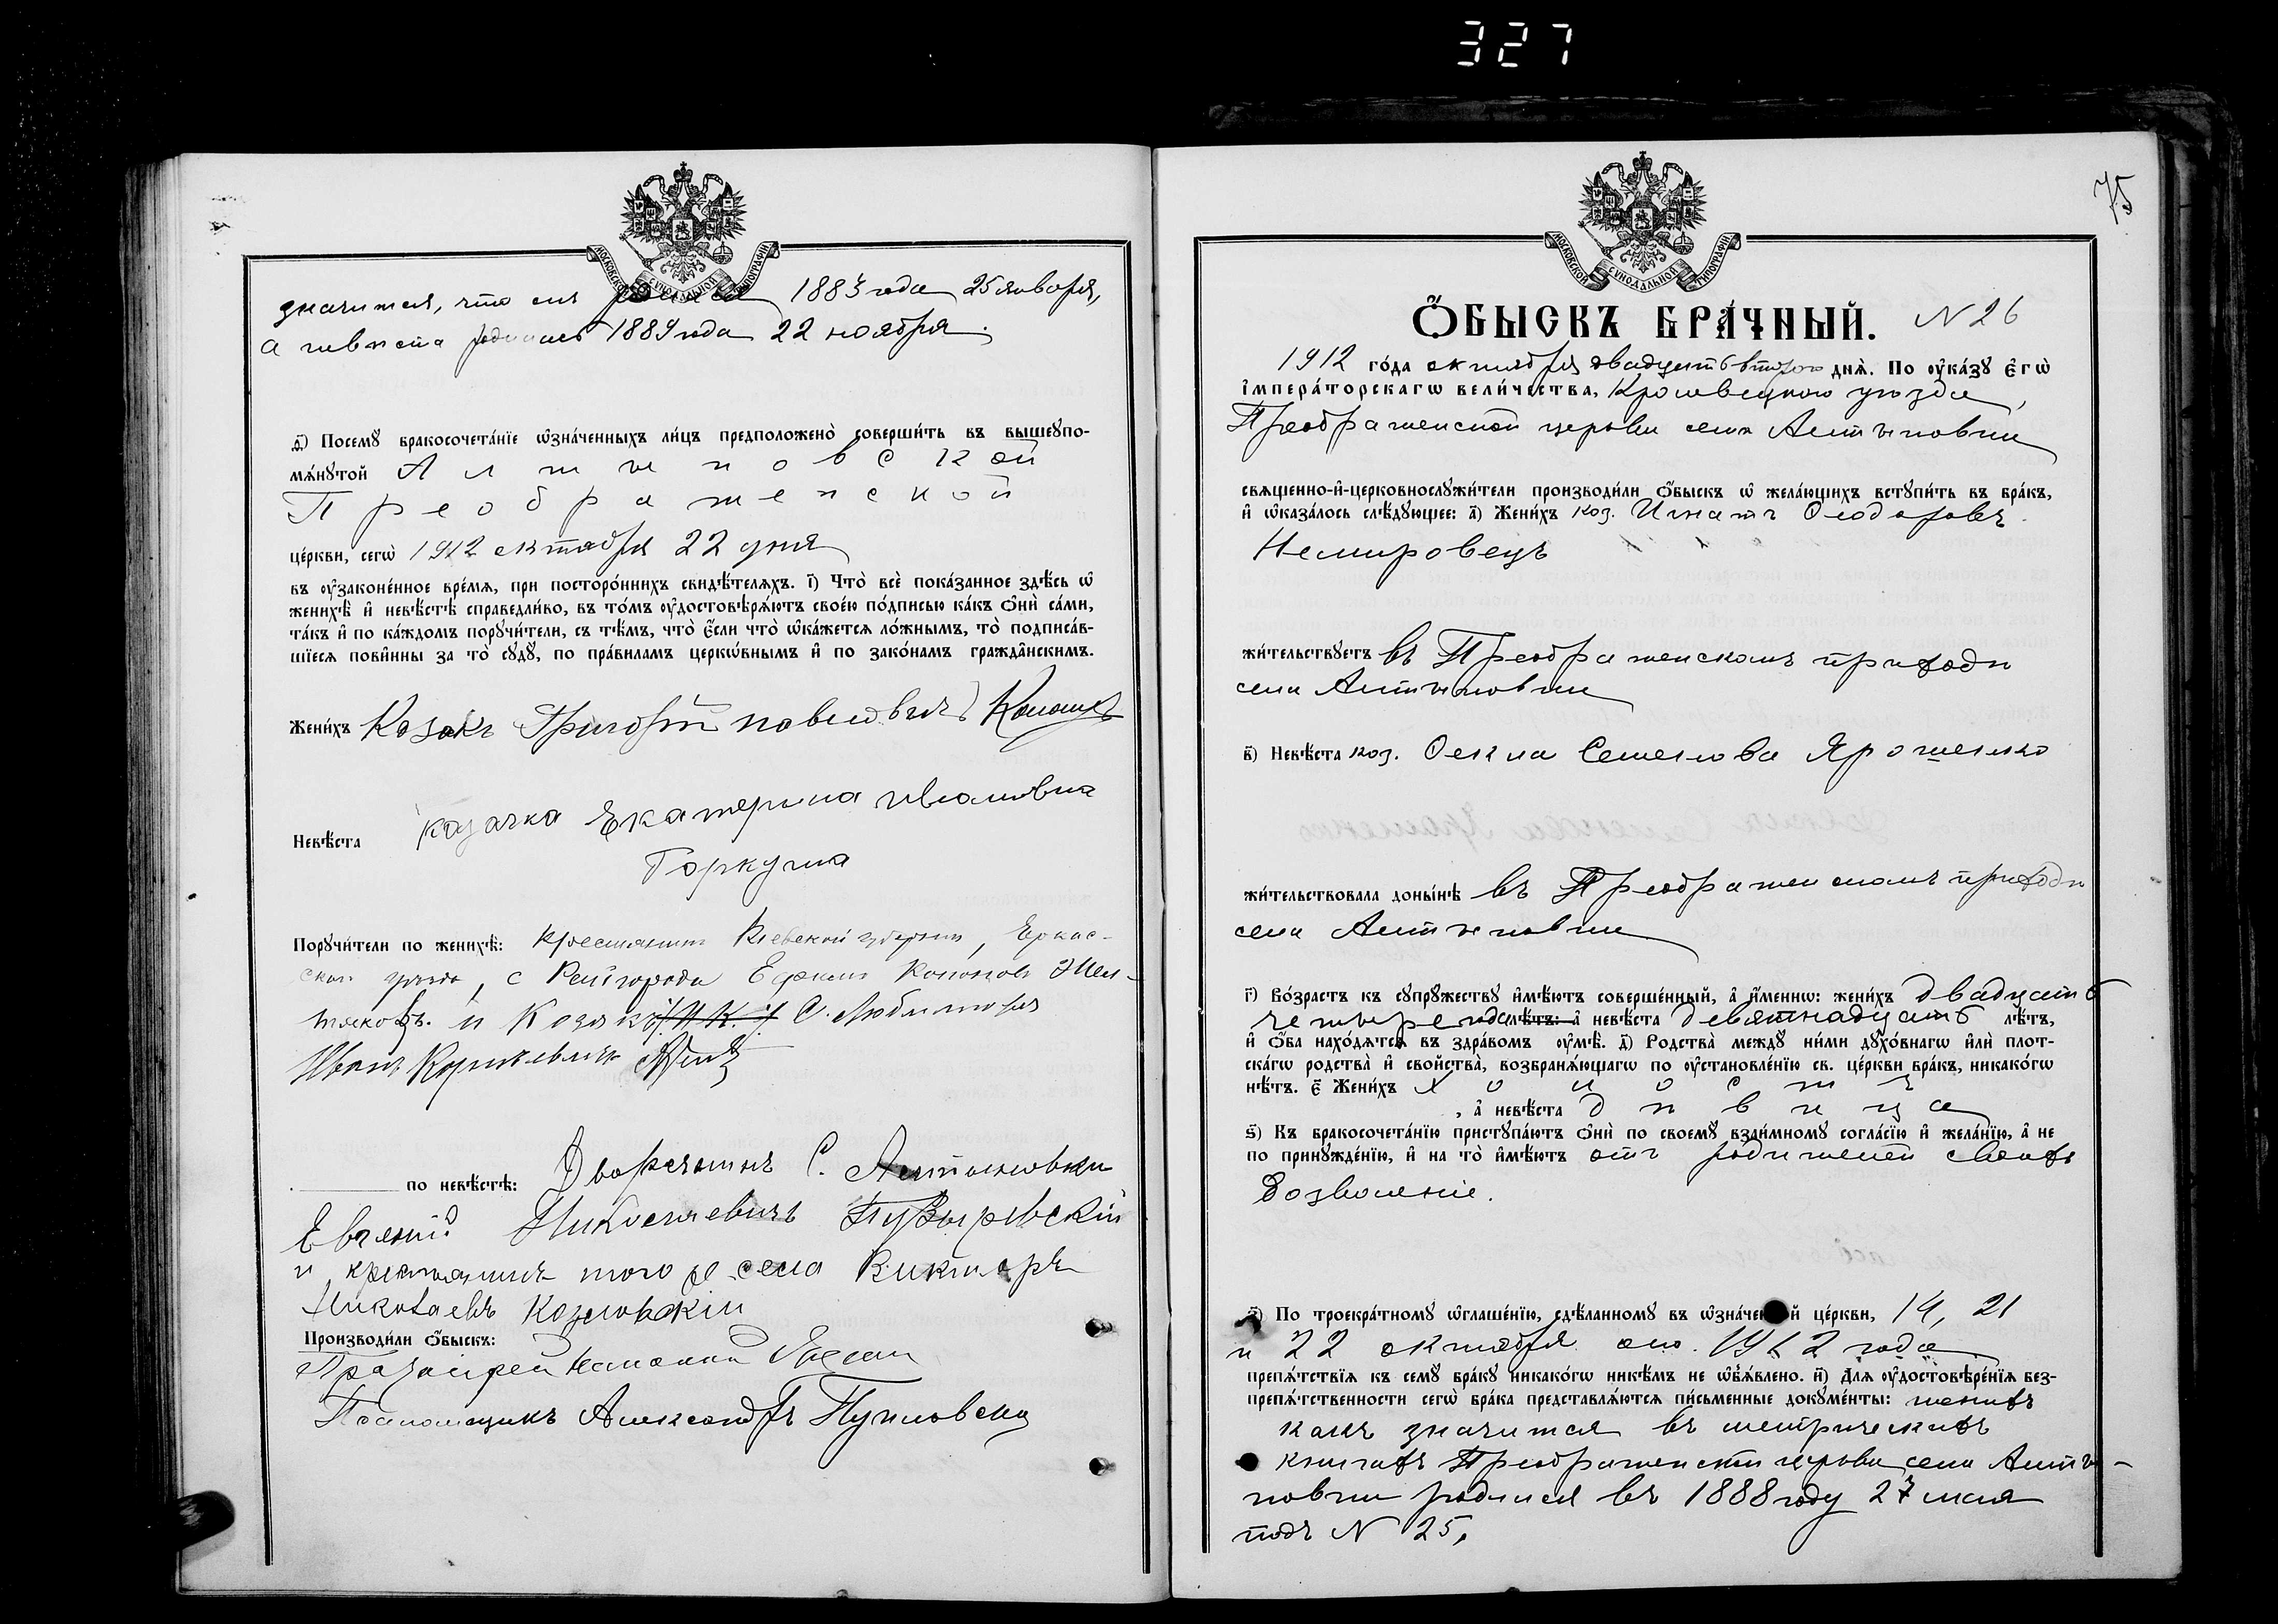 327
МОСКОВСКОЙ СѴНОДАЛЬНОЙ ТИПОГРАФІИ
значится, что онъ родился 1883 года 25 января,
а невѣста родилась 1889 года 22 ноября.
ѳ҃) Посемꙋ̀ бракосочета́нїе ѡ҆зна́ченныхъ ли́цъ предположено̀ соверши́ть въ вышеꙋпо-
мѧ́нꙋтой Алтыновской
Преображенской
це́ркви, сегѡ̀ 1912 октября 22 дня
въ ᲂу҆законе́нное вре́мѧ, при посторо́ннихъ свидѣ́телѧхъ. і҃) Что̀ всѐ пока́занное здѣ́сь ѡ҆
женихѣ̀ и҆ невѣ́стѣ справедли́во, въ то́мъ ᲂу҆достовѣрѧ́ютъ свое́ю по́дписью ка́къ ѻ҆нѝ са́ми,
та́къ и҆ по ка́ждомъ порꙋчи́тели, съ тѣ́мъ, что̀ є҆́сли что̀ ѡ҆ка́жетсѧ ло́жнымъ, то̀ подписа́в-
шїесѧ пови́нны за то̀ сꙋдꙋ̀, по пра́виламъ церкѡ́внымъ и҆ по зако́намъ гражда̂нскимъ.
Жени́хъ Козакъ Григорій Павловичъ
Невѣ́ста казачка Екатерина Ивановна
Горкуша
Порꙋчи́тели по женихѣ̀: Крестянинъ Кіевской губерніи, Черкас-
ской уезда, с Райгорода Ефимъ Кононовъ Жел-
тяковъ. и Козакъ С. Любитова
Иванъ
по невѣ́стѣ: Дворянинъ С. Алтыновки
Евгеній Николаевичъ Пузыревскій
и крестьянинъ того же села Викторъ
Николаевъ Козловскій
Производи́ли ѻ҆́быскъ:
Протоіерей
Псаломщикъ Александръ
75
МОСКОВСКОЙ СѴНОДАЛЬНОЙ ТИПОГРАФІИ
Ѻ҆́БЫСКЪ БРА́ЧНЫЙ. N 26
1912 го́да октября двадцать второго днѧ̀. По ᲂу҆ка́зꙋ Є҆гѡ̀
І҆мпера́торскагѡ вели́чества, Кролевецкого уѣзда,
Преображенской церкви села Алтыновки
свѧще́нно-и҆-церковнослꙋжи́тели производи́ли ѻ҆́быскъ ѡ҆ жела́ющихъ встꙋпи́ть въ бра́къ,
и҆ ѡ҆каза́лось слѣ́дꙋющее: а҃) Жени́хъ коз. Игнатъ Ѳеодоровъ
Немировецъ
жи́тельствꙋетъ въ Преображенскомъ приходѣ
села Алтыновки
в҃) Невѣ́ста коз. Ѳекла Семенова Ярошенко
жи́тельствовала доны́нѣ въ Преображенскомъ приходѣ
села Алтыновки
г҃) Во́зрастъ къ сꙋпрꙋ́жествꙋ и҆мѣ́ютъ соверше́нный, а҆ и҆́меннѡ: жени́хъ двадцать
четыре года лѣ́тъ: а҆ невѣ́ста девятнадцать лѣ́тъ,
и҆ ѻ҆́ба нахо́дѧтсѧ въ здра́вомъ ᲂу҆мѣ̀. д҃) Родства̀ междꙋ̀ ни́ми дꙋхо́внагѡ и҆лѝ плот-
ска́гѡ родства̀ и҆ сво́йства̀, возбранѧ́ющагѡ по ᲂу҆становле́нїю св. це́ркви бра́къ, никако́гѡ
нѣ́тъ. є҃) Жени́хъ холостъ
, а҆ невѣ́ста дѣвица
ѕ҃) Къ бракосочета́нїю пристꙋпа́ютъ ѻ҆нѝ по своемꙋ̀ взаи́мномꙋ согла́сїю и҆ жела́нїю, а҆ не
по принꙋжде́нїю, и҆ на то̀ и҆мѣ́ютъ отъ родителей своихъ
дозволеніе.
з҃) По троекра́тномꙋ ѡ҆глаше́нїю, сдѣ́ланномꙋ въ ѡ҆зна́ченной це́ркви, 14, 21
и 22 октября сего. 1912 года
препѧ́тствїѧ къ семꙋ̀ бра́кꙋ никако́гѡ никѣ́мъ не ѡ҆б̾ѧ́влено. и҃) Длѧ ᲂу҆достовѣре́нїѧ без-
препѧ́тственности сегѡ̀ бра́ка представлѧ́ютсѧ пи́сьменные докꙋме́нты: женихъ
какъ значится въ метрическихъ
книгахъ Преображенской церкви села Алты-
новки родился въ 1888 году 27 мая
подъ N 25,